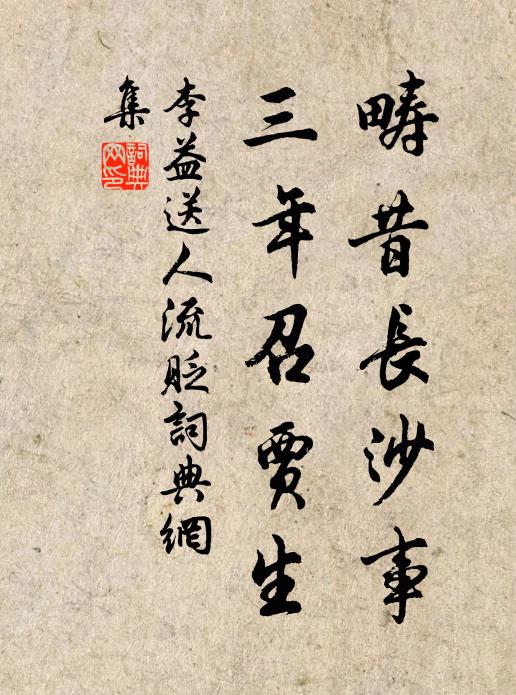 疇昔長沙事
三年召賈生
李益送人流貶詞典網
集
詞典
网印